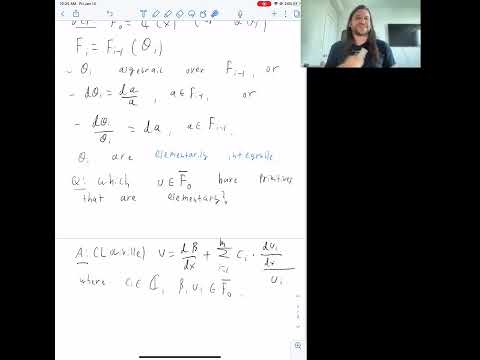 10:25 AM Fri Jan 14
F₀ = ℂ(x)
Fᵢ = Fᵢ₋₁(θᵢ)
- θᵢ algebraic over Fᵢ₋₁, or
- dθᵢ = da/a, a ∈ Fᵢ₋₁, or
- dθᵢ/θᵢ = da, a ∈ Fᵢ₋₁.
θᵢ are elementarily integrable
Q: which v ∈ F̄₀ have primitives
that are elementary?
A: (Liouville) v = dβ/dx + Σᵢ₌₁ᵐ cᵢ · (duᵢ/dx)/uᵢ
where cᵢ ∈ ℂ, β, uᵢ ∈ F̄₀.